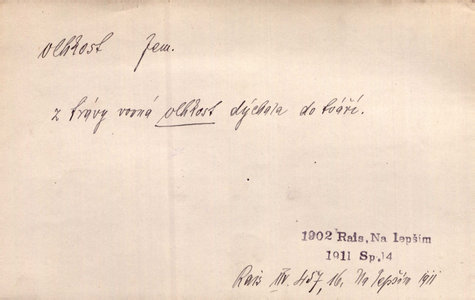 vlhkost fem.
z trávy vonná vlhkost dýchala do tváří.
1902 Rais, Na lepším
1911 Sp. 14
Rais 457, 16. Na lepším 1911